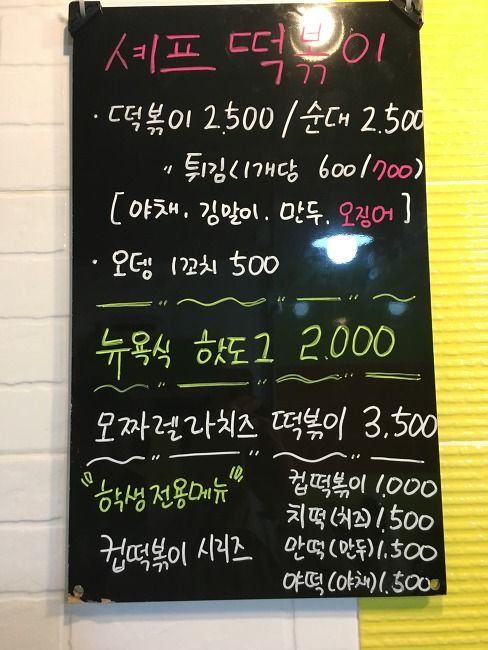 셰프 떡볶이
· 떡볶이 2.500 / 순대 2.500
" 튀김(1개당 600/700)
[야채. 김말이. 만두. 오징어]
· 오뎅 1꼬치 500
뉴욕식 핫도그 2.000
모짜렐라치즈 떡볶이 3.500
"학생전용메뉴"
컵떡볶이 시리즈
컵떡볶이 1.000
치떡(치즈) 1.500
만떡(만두) 1.500
야떡(야채) 1.500